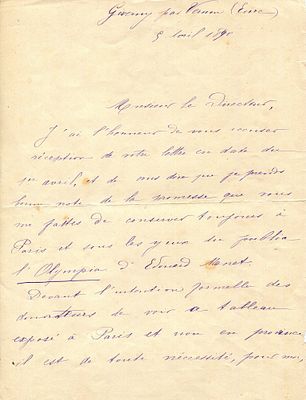 Giverny par Vernon (Eure)
5 avril 1890
Monsieur le Directeur,
J'ai l'honneur de vous accuser
réception de votre lettre en date du
1er avril, et de vous dire que je prends
bonne note de la promesse que vous
me faites de conserver toujours à
Paris et sous les yeux du public
l'Olympia d'Edouard Manet
Devant l'intention formelle des
donateurs de voir ce tableau
exposé à Paris et non en province,
il est de toute nécessité, pour moi,